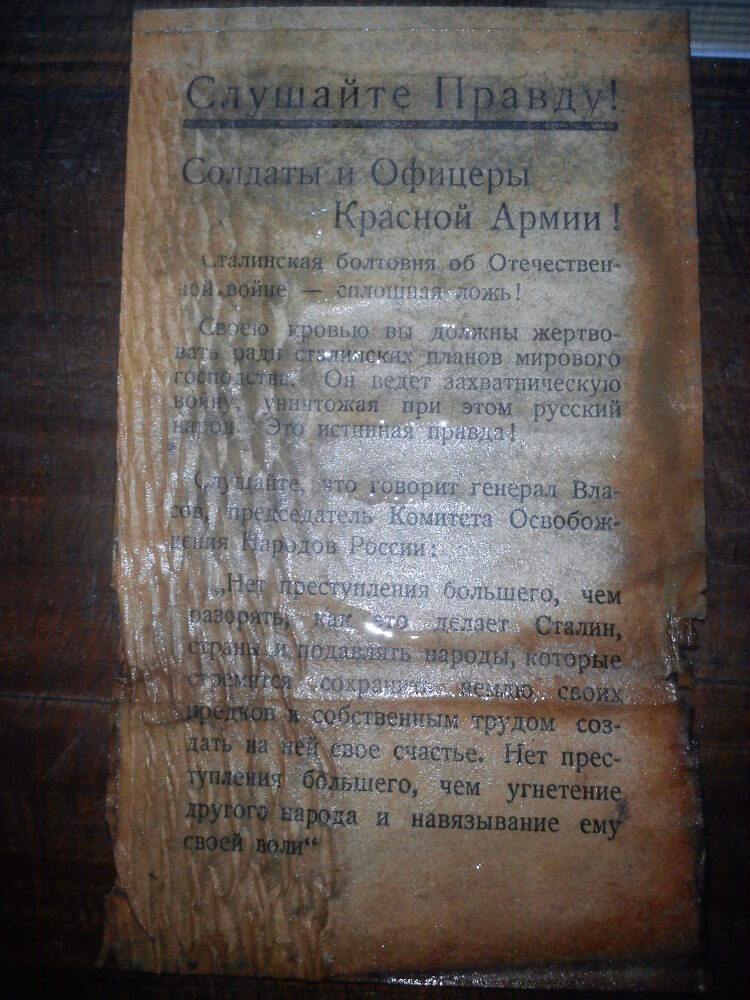 Слушайте Правду!
Солдаты и Офицеры
Красной Армии!
Сталинская болтовня об Отечествен-
ной войне — сплошная ложь!
Своею кровью вы должны жертво-
вать ради сталинских планов мирового
господства. Он ведет захватническую
войну, уничтожая при этом русский
народ. Это истинная правда!
Слушайте, что говорит генерал Вла-
сов, председатель Комитета Освобож-
дения Народов России:
„Нет преступления большего, чем
разорять, как это делает Сталин,
страны и подавлять народы, которые
стремятся сохранить землю своих
предков и собственным трудом соз-
дать на ней свое счастье. Нет прес-
тупления большего, чем угнетение
другого народа и навязывание ему
своей воли“